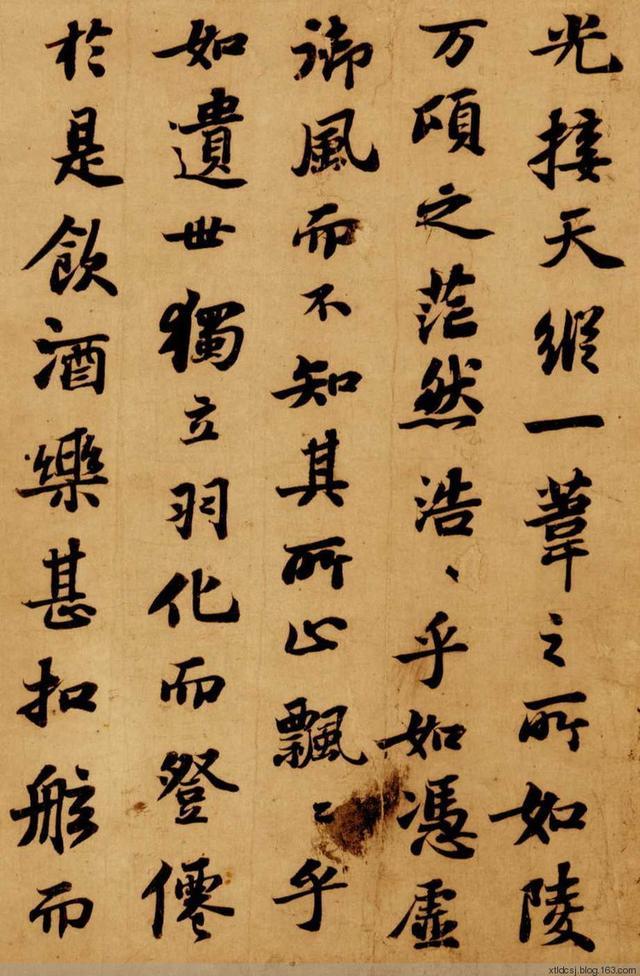 光接天縱一葦之所如陵
万頃之茫然浩〻乎如馮虛
御風而不知其所止飄〻乎
如遺世獨立羽化而登僊
於是飲酒樂甚扣舷而
xtldcsj.blog.163.com